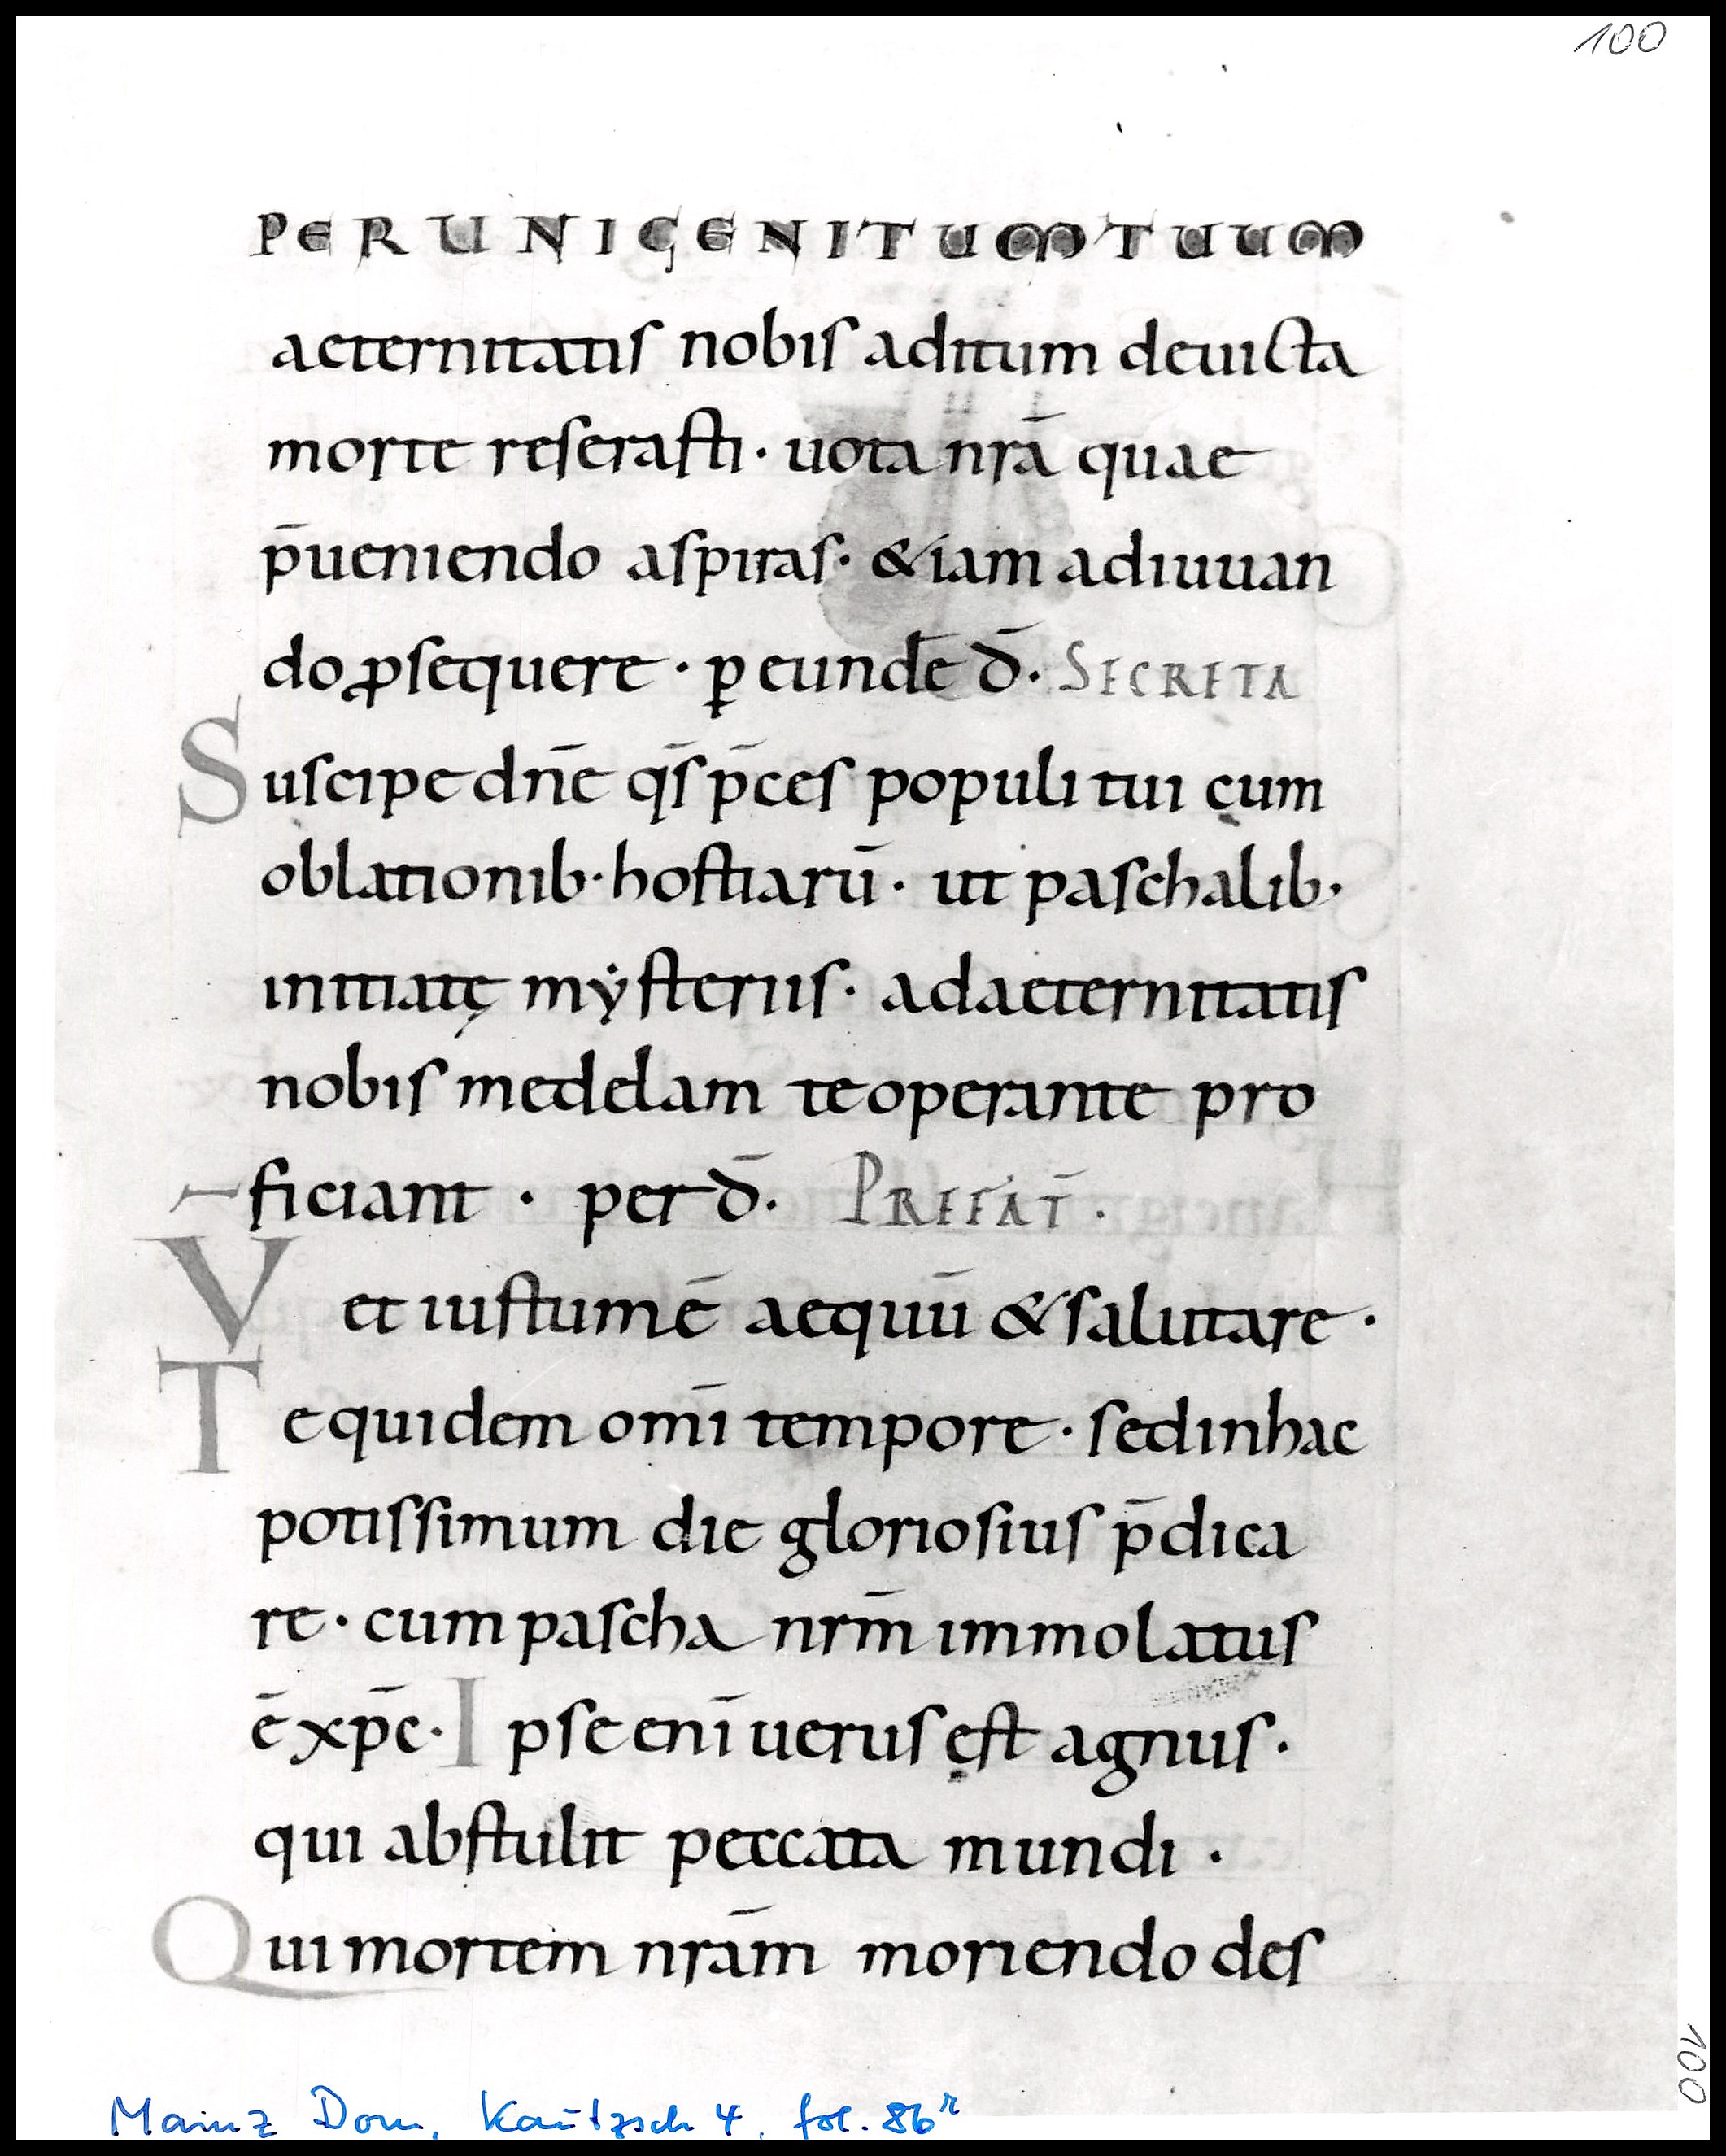 100
PER UNIGENITUM TUUM
aeternitatis nobis aditum deuicta
morte reserasti · uota nrā quae
p̄ueniendo aspiras · & iam adiuuan
do ꝓsequere · ꝑ eundē đ · SECRETA
Suscipe dnē qs̄ p̄ces populi tui cum
oblationib · hostiarū · ut paschalib ·
initiatę mẏsteriis · ad aeternitatis
nobis medelam te operante pro
ficiant · per đ · PREFAT̄ ·
V et iustum ē aequū & salutare ·
Te quidem om̄i tempore · sed in hac
potissimum die gloriosius p̄dica
re · cum pascha nrm̄ immolatus
ē xp̄c · Ipse enī uerus est agnus ·
qui abstulit peccata mundi ·
Qui mortem nrām moriendo des
Mainz Dom, Kautzsch 4, fol. 86r
100